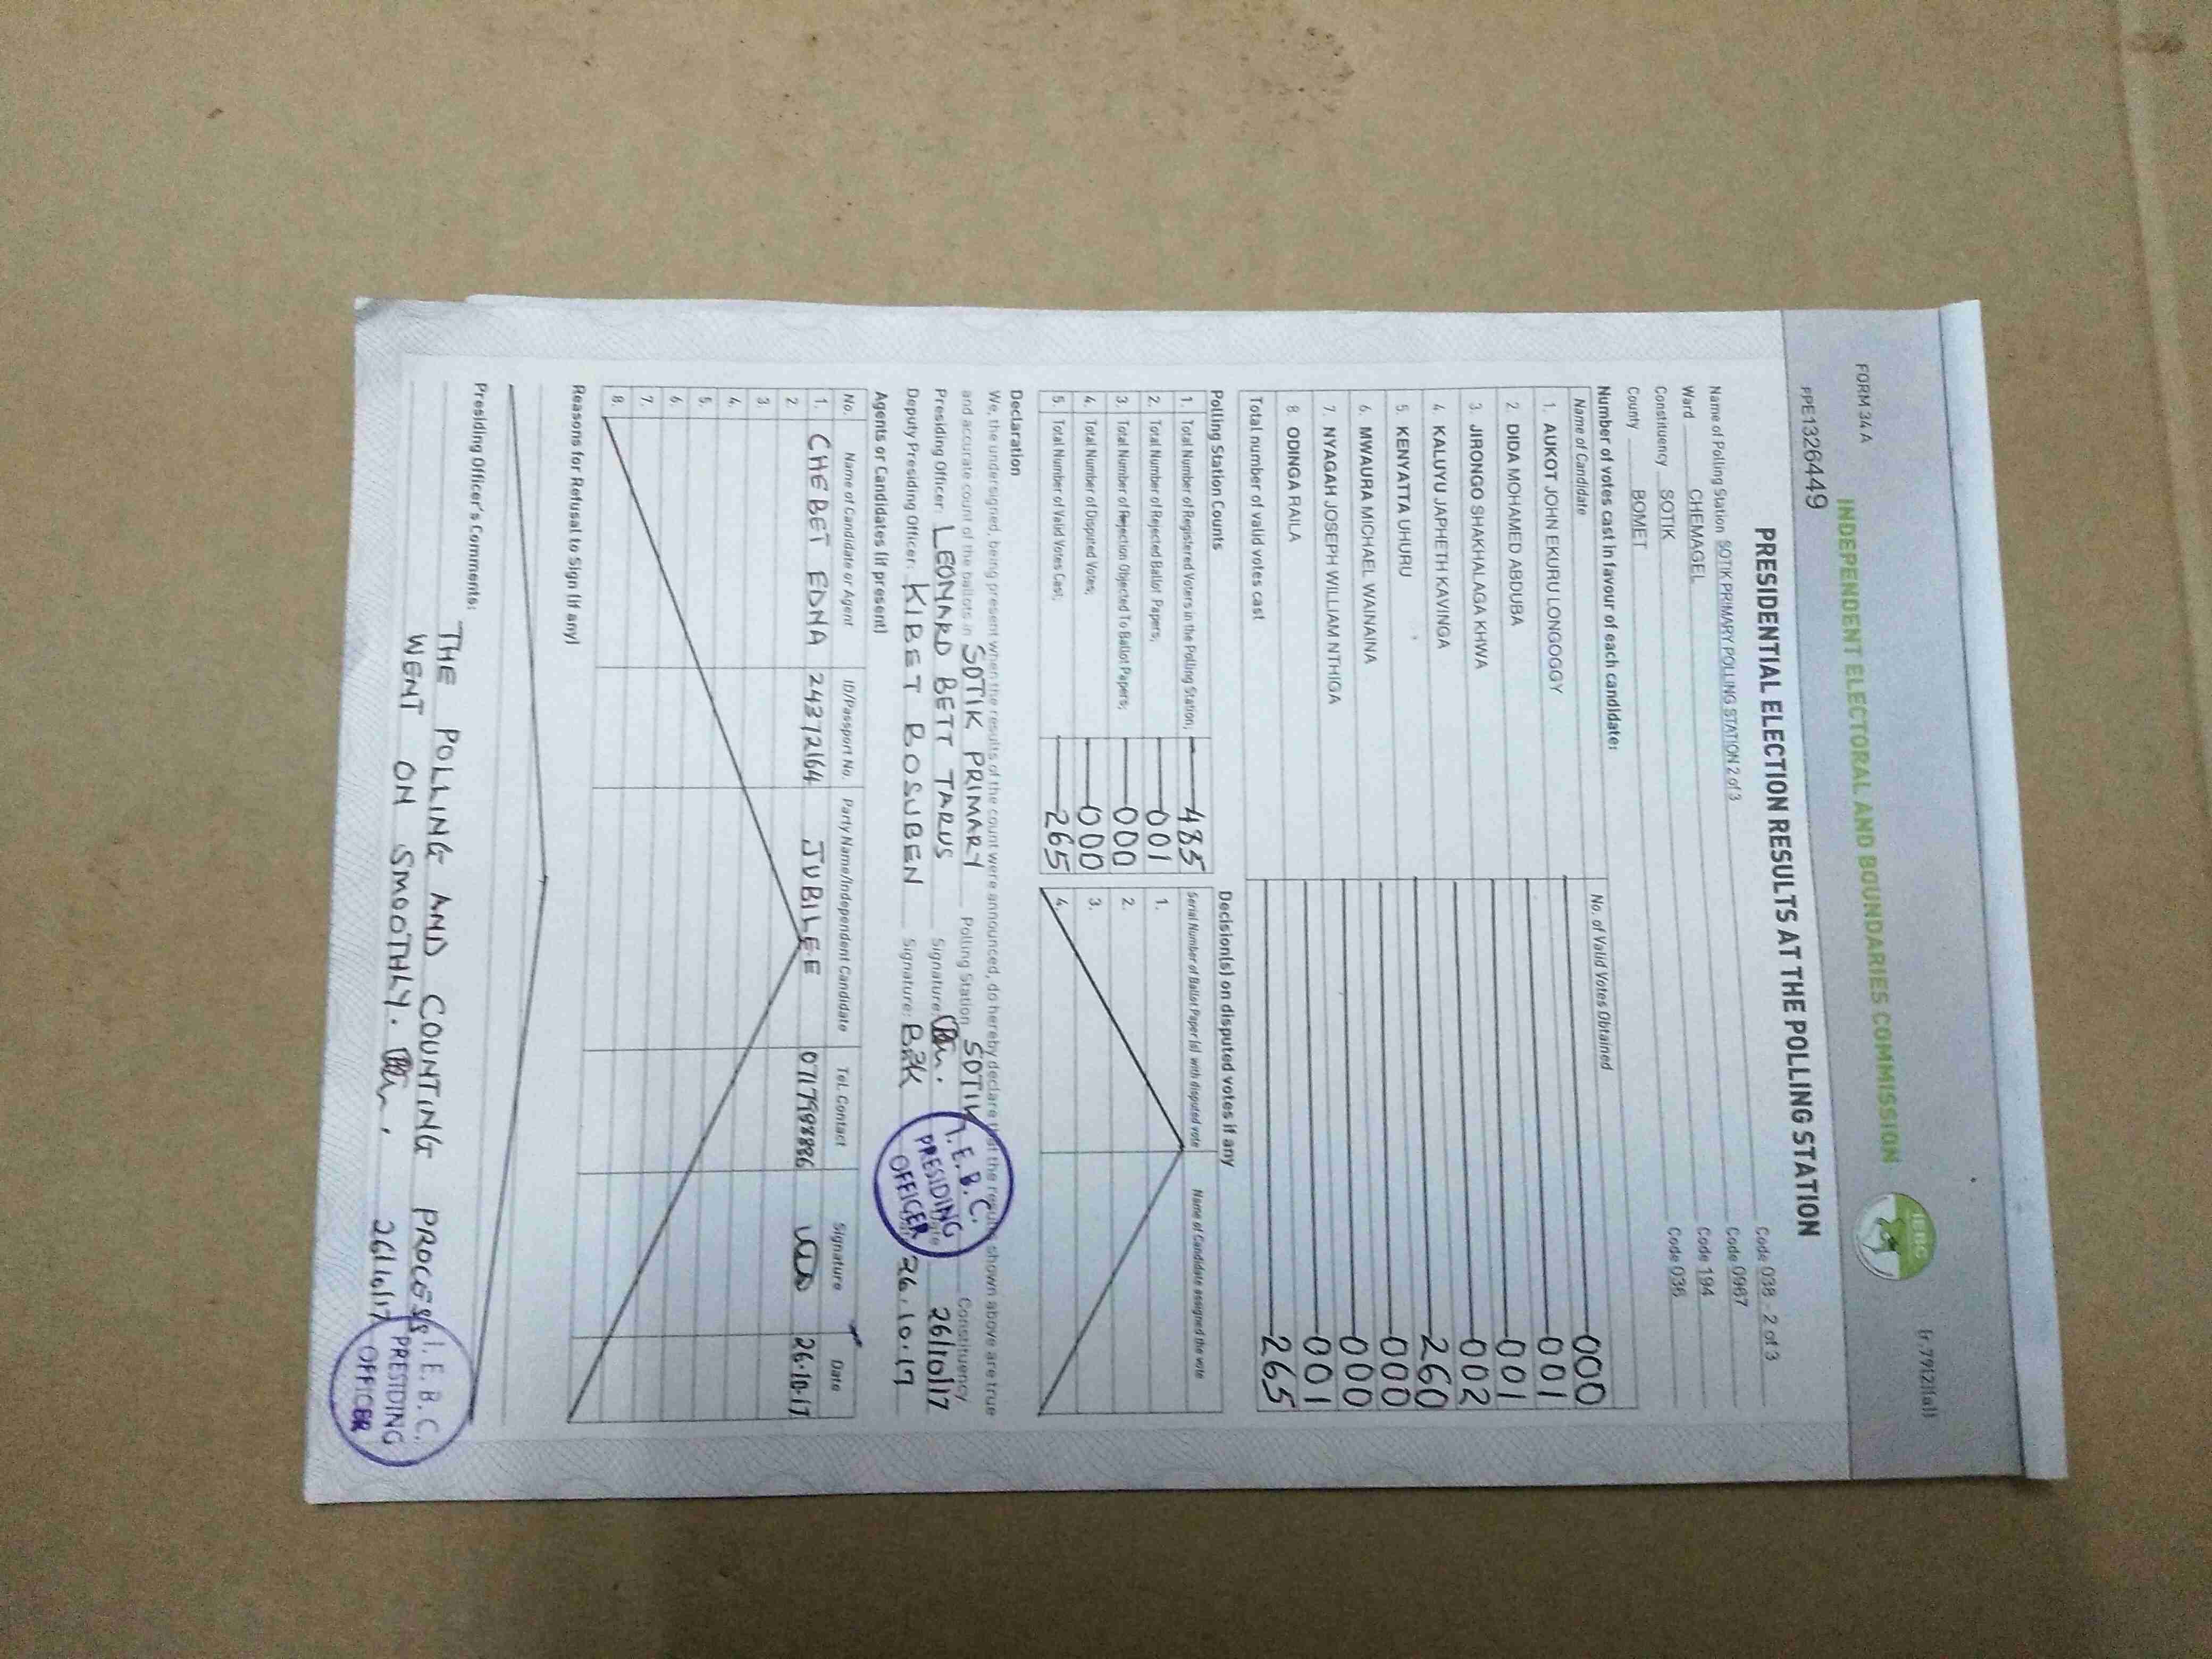 FORM 34 A
[r.79(2)(a)]
INDEPENDENT ELECTORAL AND BOUNDARIES COMMISSION
IEBC
PPE1326449
PRESIDENTIAL ELECTION RESULTS AT THE POLLING STATION
Name of Polling Station SOTIK PRIMARY POLLING STATION 2 of 3 Code 038 - 2 of 3
Ward CHEMAGEL Code 0967
Constituency SOTIK Code 194
County BOMET Code 036
Number of votes cast in favour of each candidate:
Name of Candidate No. of Valid Votes Obtained
1. AUKOT JOHN EKURU LONGOGGY 000
2. DIDA MOHAMED ABDUBA 001
3. JIRONGO SHAKHALAGA KHWA 001
4. KALUYU JAPHETH KAVINGA 002
5. KENYATTA UHURU 260
6. MWAURA MICHAEL WAINAINA 000
7. NYAGAH JOSEPH WILLIAM NTHIGA 000
8. ODINGA RAILA 001
Total number of valid votes cast 265
Polling Station Counts
1. Total Number of Registered Voters in the Polling Station; 485
2. Total Number of Rejected Ballot Papers; 001
3. Total Number of Rejection Objected To Ballot Papers; 000
4. Total Number of Disputed Votes; 000
5. Total Number of Valid Votes Cast; 265
Decision(s) on disputed votes if any
Serial Number of Ballot Paper (s) with disputed vote Name of Candidate assigned the vote
1.
2.
3.
4.
Declaration
We, the undersigned, being present when the results of the count were announced, do hereby declare that the results shown above are true
and accurate count of the ballots in SOTIK PRIMARY Polling Station SOTIK Constituency
Presiding Officer: LEONARD BETT TARUS Signature: 26/10/17
Deputy Presiding Officer: KIBET BOSUBEN Signature: 26.10.17
I.E.B.C.
PRESIDING
OFFICER
Agents or Candidates (if present)
No. Name of Candidate or Agent ID/Passport No. Party Name/Independent Candidate Tel. Contact Signature Date
1. CHEBET EDNA 24372164 JUBILEE 0717998886 26.10.17
2.
3.
4.
5.
6.
7.
8.
Reasons for Refusal to Sign (if any)
Presiding Officer's Comments:
THE POLLING AND COUNTING PROCESS
WENT ON SMOOTHLY. 26/10/17
I.E.B.C.
PRESIDING
OFFICER